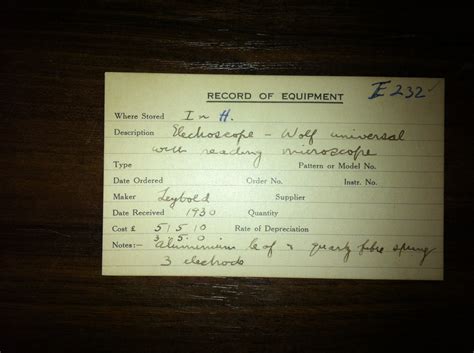 E 232
RECORD OF EQUIPMENT
Where Stored In H.
Description Electroscope - Wolf universal
with reading microscope
Type Pattern or Model No.
Date Ordered Order No. Instr. No.
Maker Leybold Supplier
Date Received 1930 Quantity
Cost £ 5/5/0 Rate of Depreciation
3 5. 0
Notes:— Aluminium leaf & quartz fibre spring
3 electrods